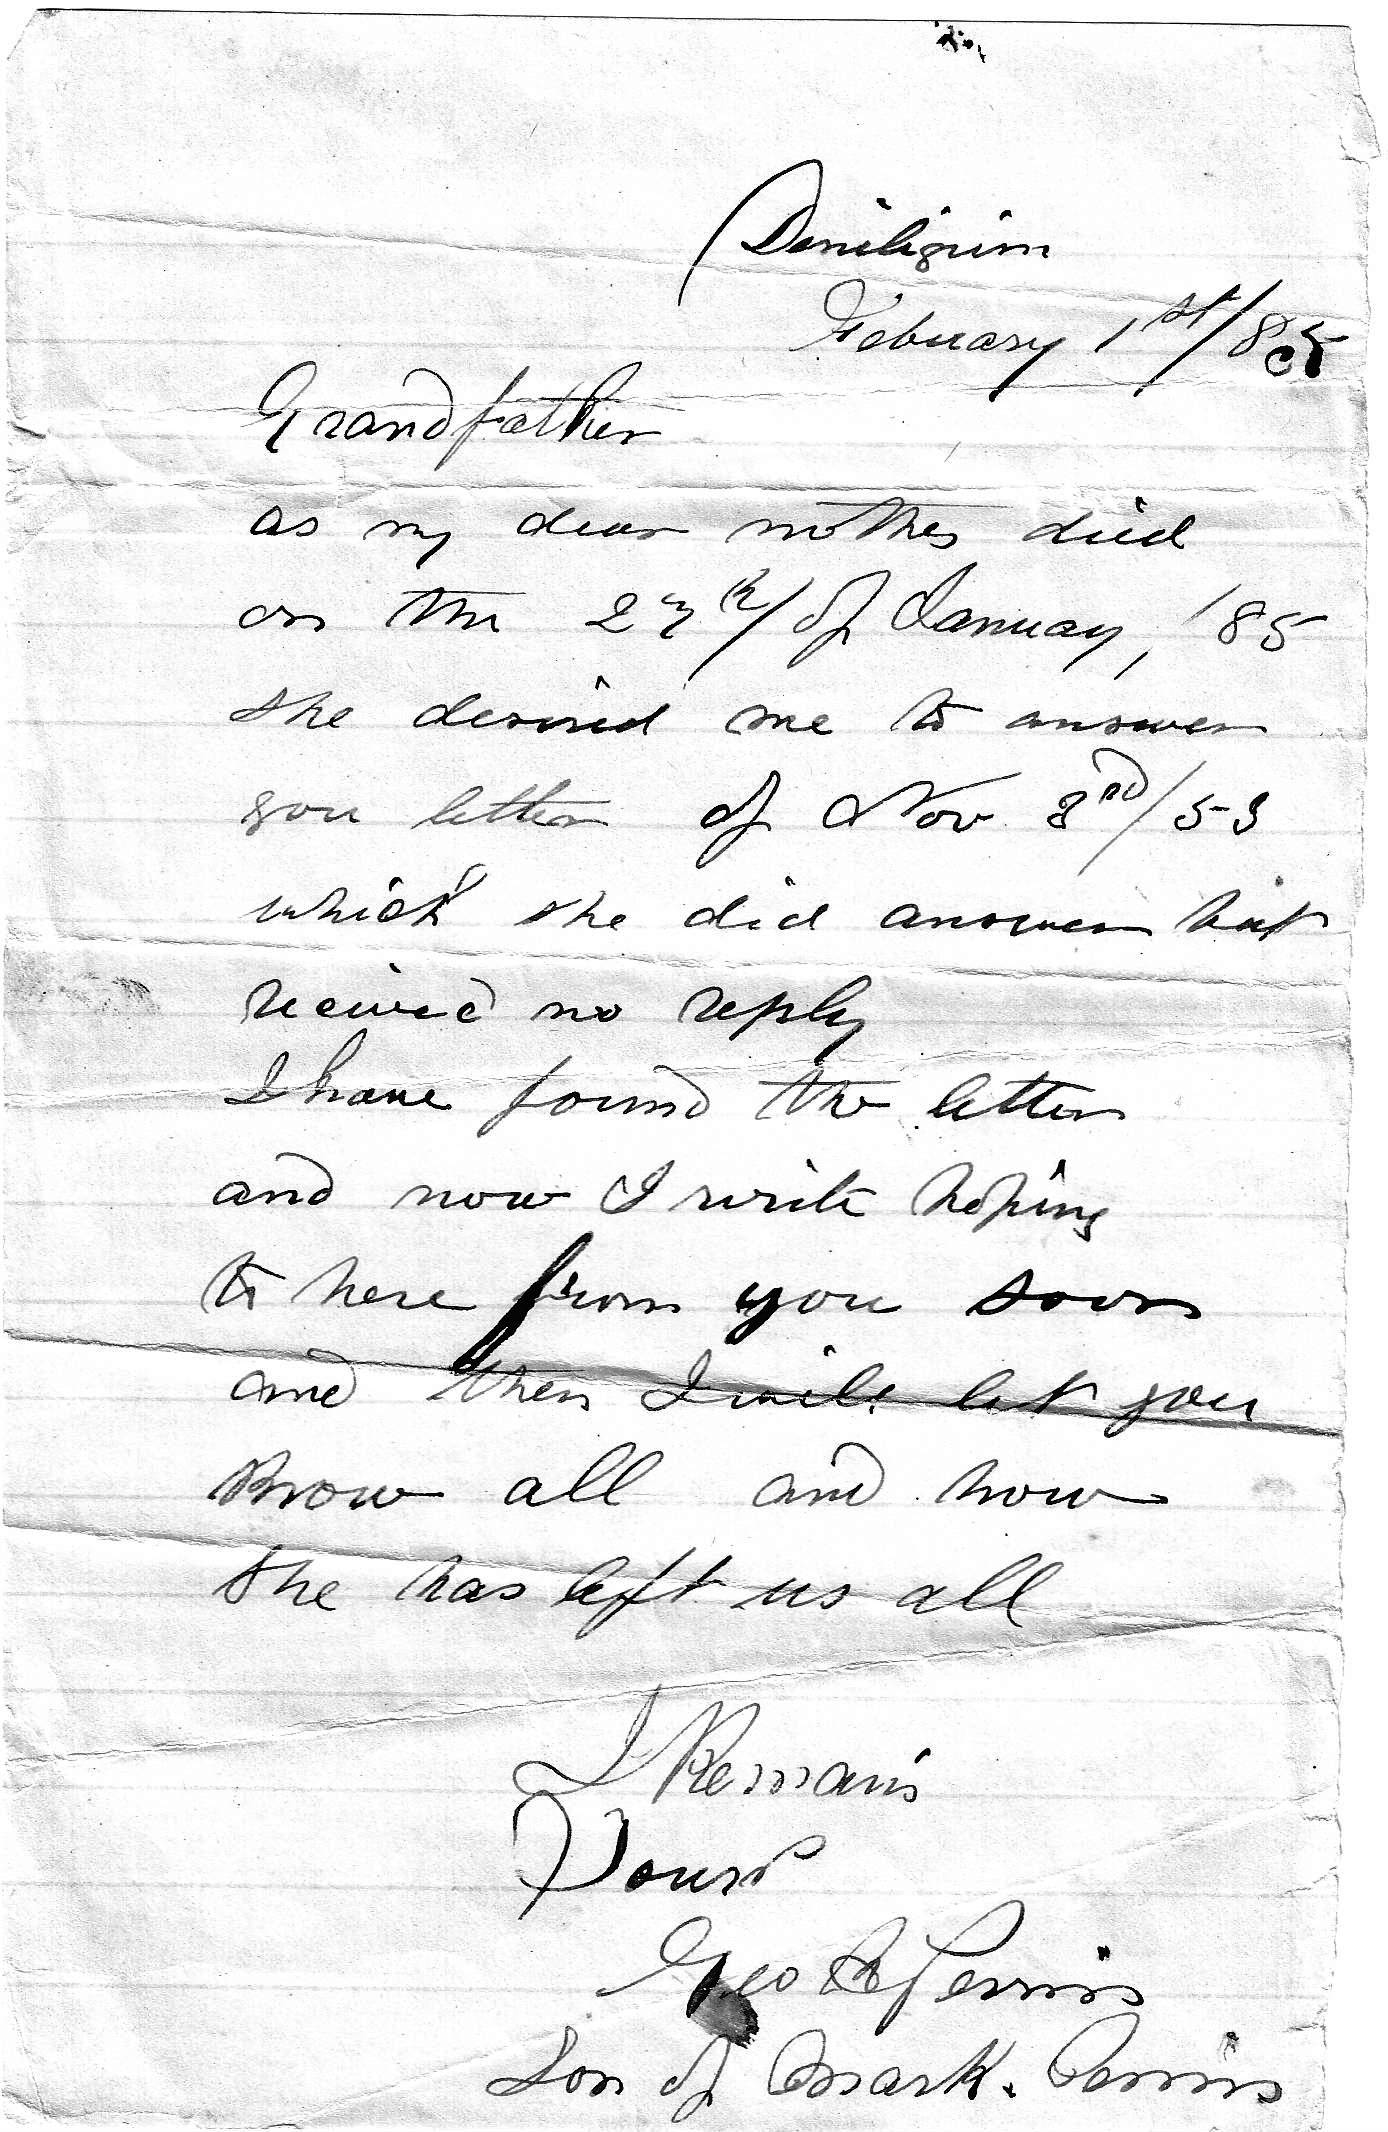 Deniliquin
Febuary 1st/85
Grandfather
as my dear mother died
on the 27th/ of January, /85
she desired me to answer
you letter of Nov 3rd/53
which she did answer but
reeived no reply
I have found the letter
and now I write hoping
to here from you soon
and then I will let you
know all and how
she has left us all
I Remain
Yours
Geo Perrin
Son of Mark. Perrin